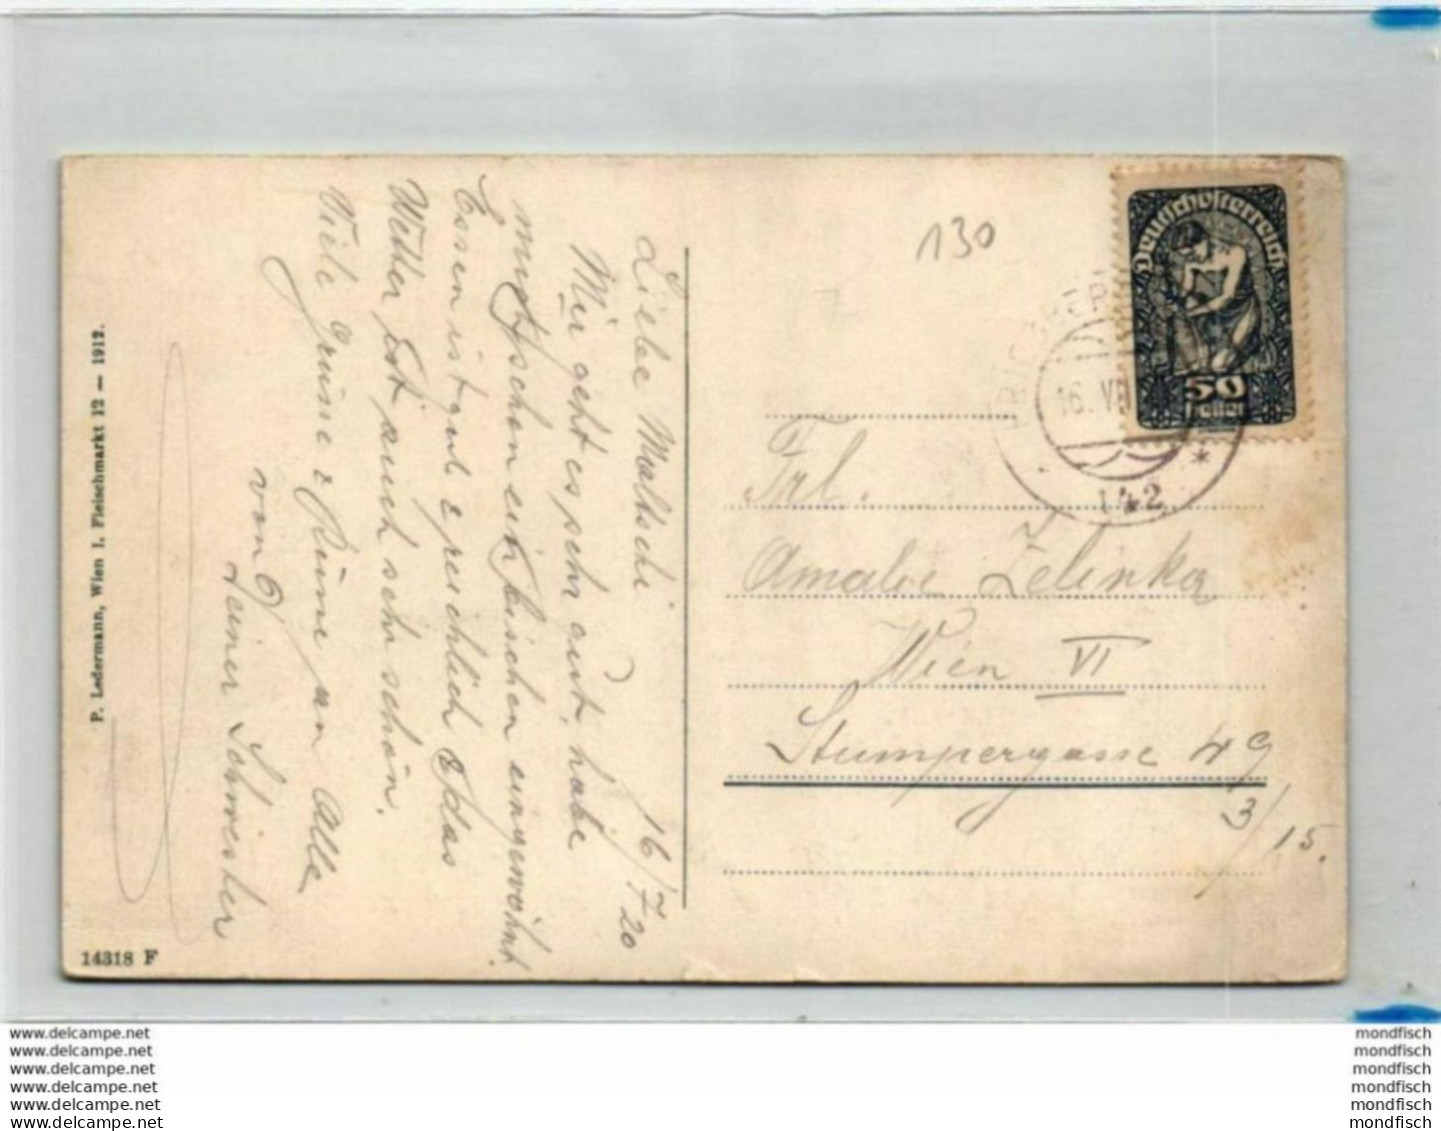 16/7 20
Liebe Maltschi
Mir geht es sehr gut, habe
mich schon ein bischen eingewöhnt.
Essen ist gut & reichlich & das
Wetter ist auch sehr schön.
Viele Grüsse & an Alle
von
Deiner Schwester
P. Ledermann, Wien I. Fleischmarkt 12 — 1912.
14318 F
130
Deutschösterreich
50
Heller
16. VII
142
Frl.
Amalie Zelinka
Wien VI
Stumpergasse 49
3/15.
www.delcampe.net
www.delcampe.net
www.delcampe.net
www.delcampe.net
www.delcampe.net
www.delcampe.net
mondfisch
mondfisch
mondfisch
mondfisch
mondfisch
mondfisch